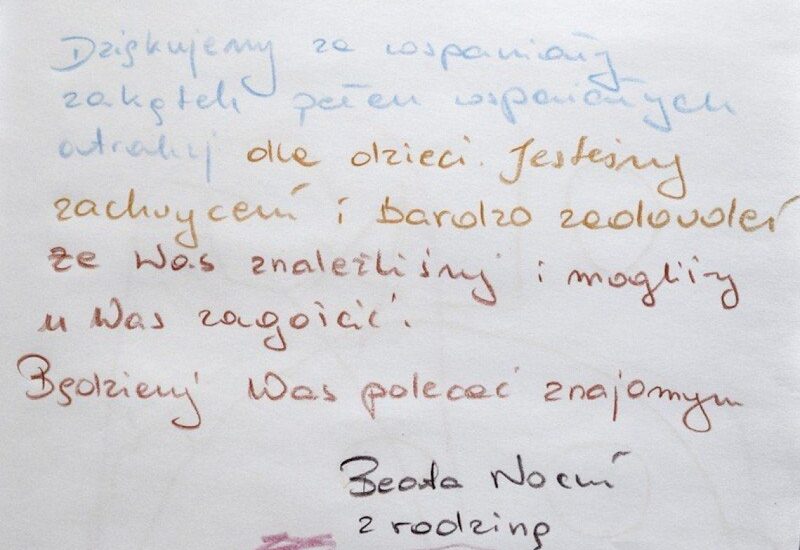 Dziękujemy za wspaniały
zakątek pełen wspaniałych
atrakcji dla dzieci. Jesteśmy
zachwyceni i bardzo zadowoleni
że Was znaleźliśmy i mogliśmy
u Was zagościć.
Będziemy Was polecać znajomym
Beata
z rodziną